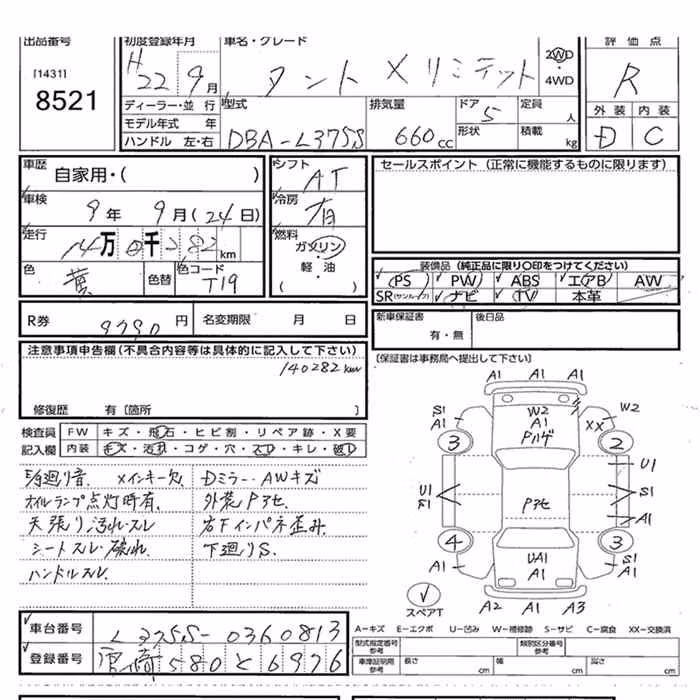 出品番号 初度登録年月 車名・グレード 評価点
[1431]
8521
H 22 9月 タント X リミテッド 2WD・4WD R
ディーラー・並行 型式 排気量 ドア 5 定員 人 外装 内装
モデル年式 年 形状 積載 kg
ハンドル 左・右 DBA-L375S 660cc D C
車歴 自家用・( ) シフト AT セールスポイント (正常に機能するものに限ります)
車検 9年 9月(24日) 冷房 有
走行 14万0千282km 燃料 ガソリン・軽油 ( )
装備品 (純正品に限り○印をつけてください)
色 黄 色替 色コード T19
PS PW ABS エアB AW
SR(サンルーフ) ナビ TV 本革
R券 9790円 名変期限 月 日
新車保証書 有・無 後日品
注意事項申告欄(不具合内容等は具体的に記入して下さい)
(保証書は事務局へ提出して下さい)
140282km
修復歴 有〔箇所 〕
検査員 FW キズ・飛石・ヒビ割・リペア跡・X要
記入欄 内装 キズ・汚れ・コゲ・穴・スレ・キレ・破れ
廻り音. Xインキー欠. Dミラー・AWキズ
オイルランプ点灯時有. 外装Pアセ.
天張り汚れ・スレ 右Fインパネ歪み.
シートスレ・破れ. 下廻りS.
ハンドルスレ.
A1 A1
S1 A1 W2 A1 Pハゲ XX W2
3 2
U1
U1 F1 Pアセ S1
A1
4 3
A1 UA1 A1 S1 A1
スペアT A2 A1 A3
車台番号 L375S-0360813
A-キズ E-エクボ U-凹み W-補修跡 S-サビ C-腐食 XX-交換済
型式指定番号 参考 類別区分番号 参考
登録番号 宮崎580と6976
車庫証明用 参考 長さ cm 幅 cm 高さ cm